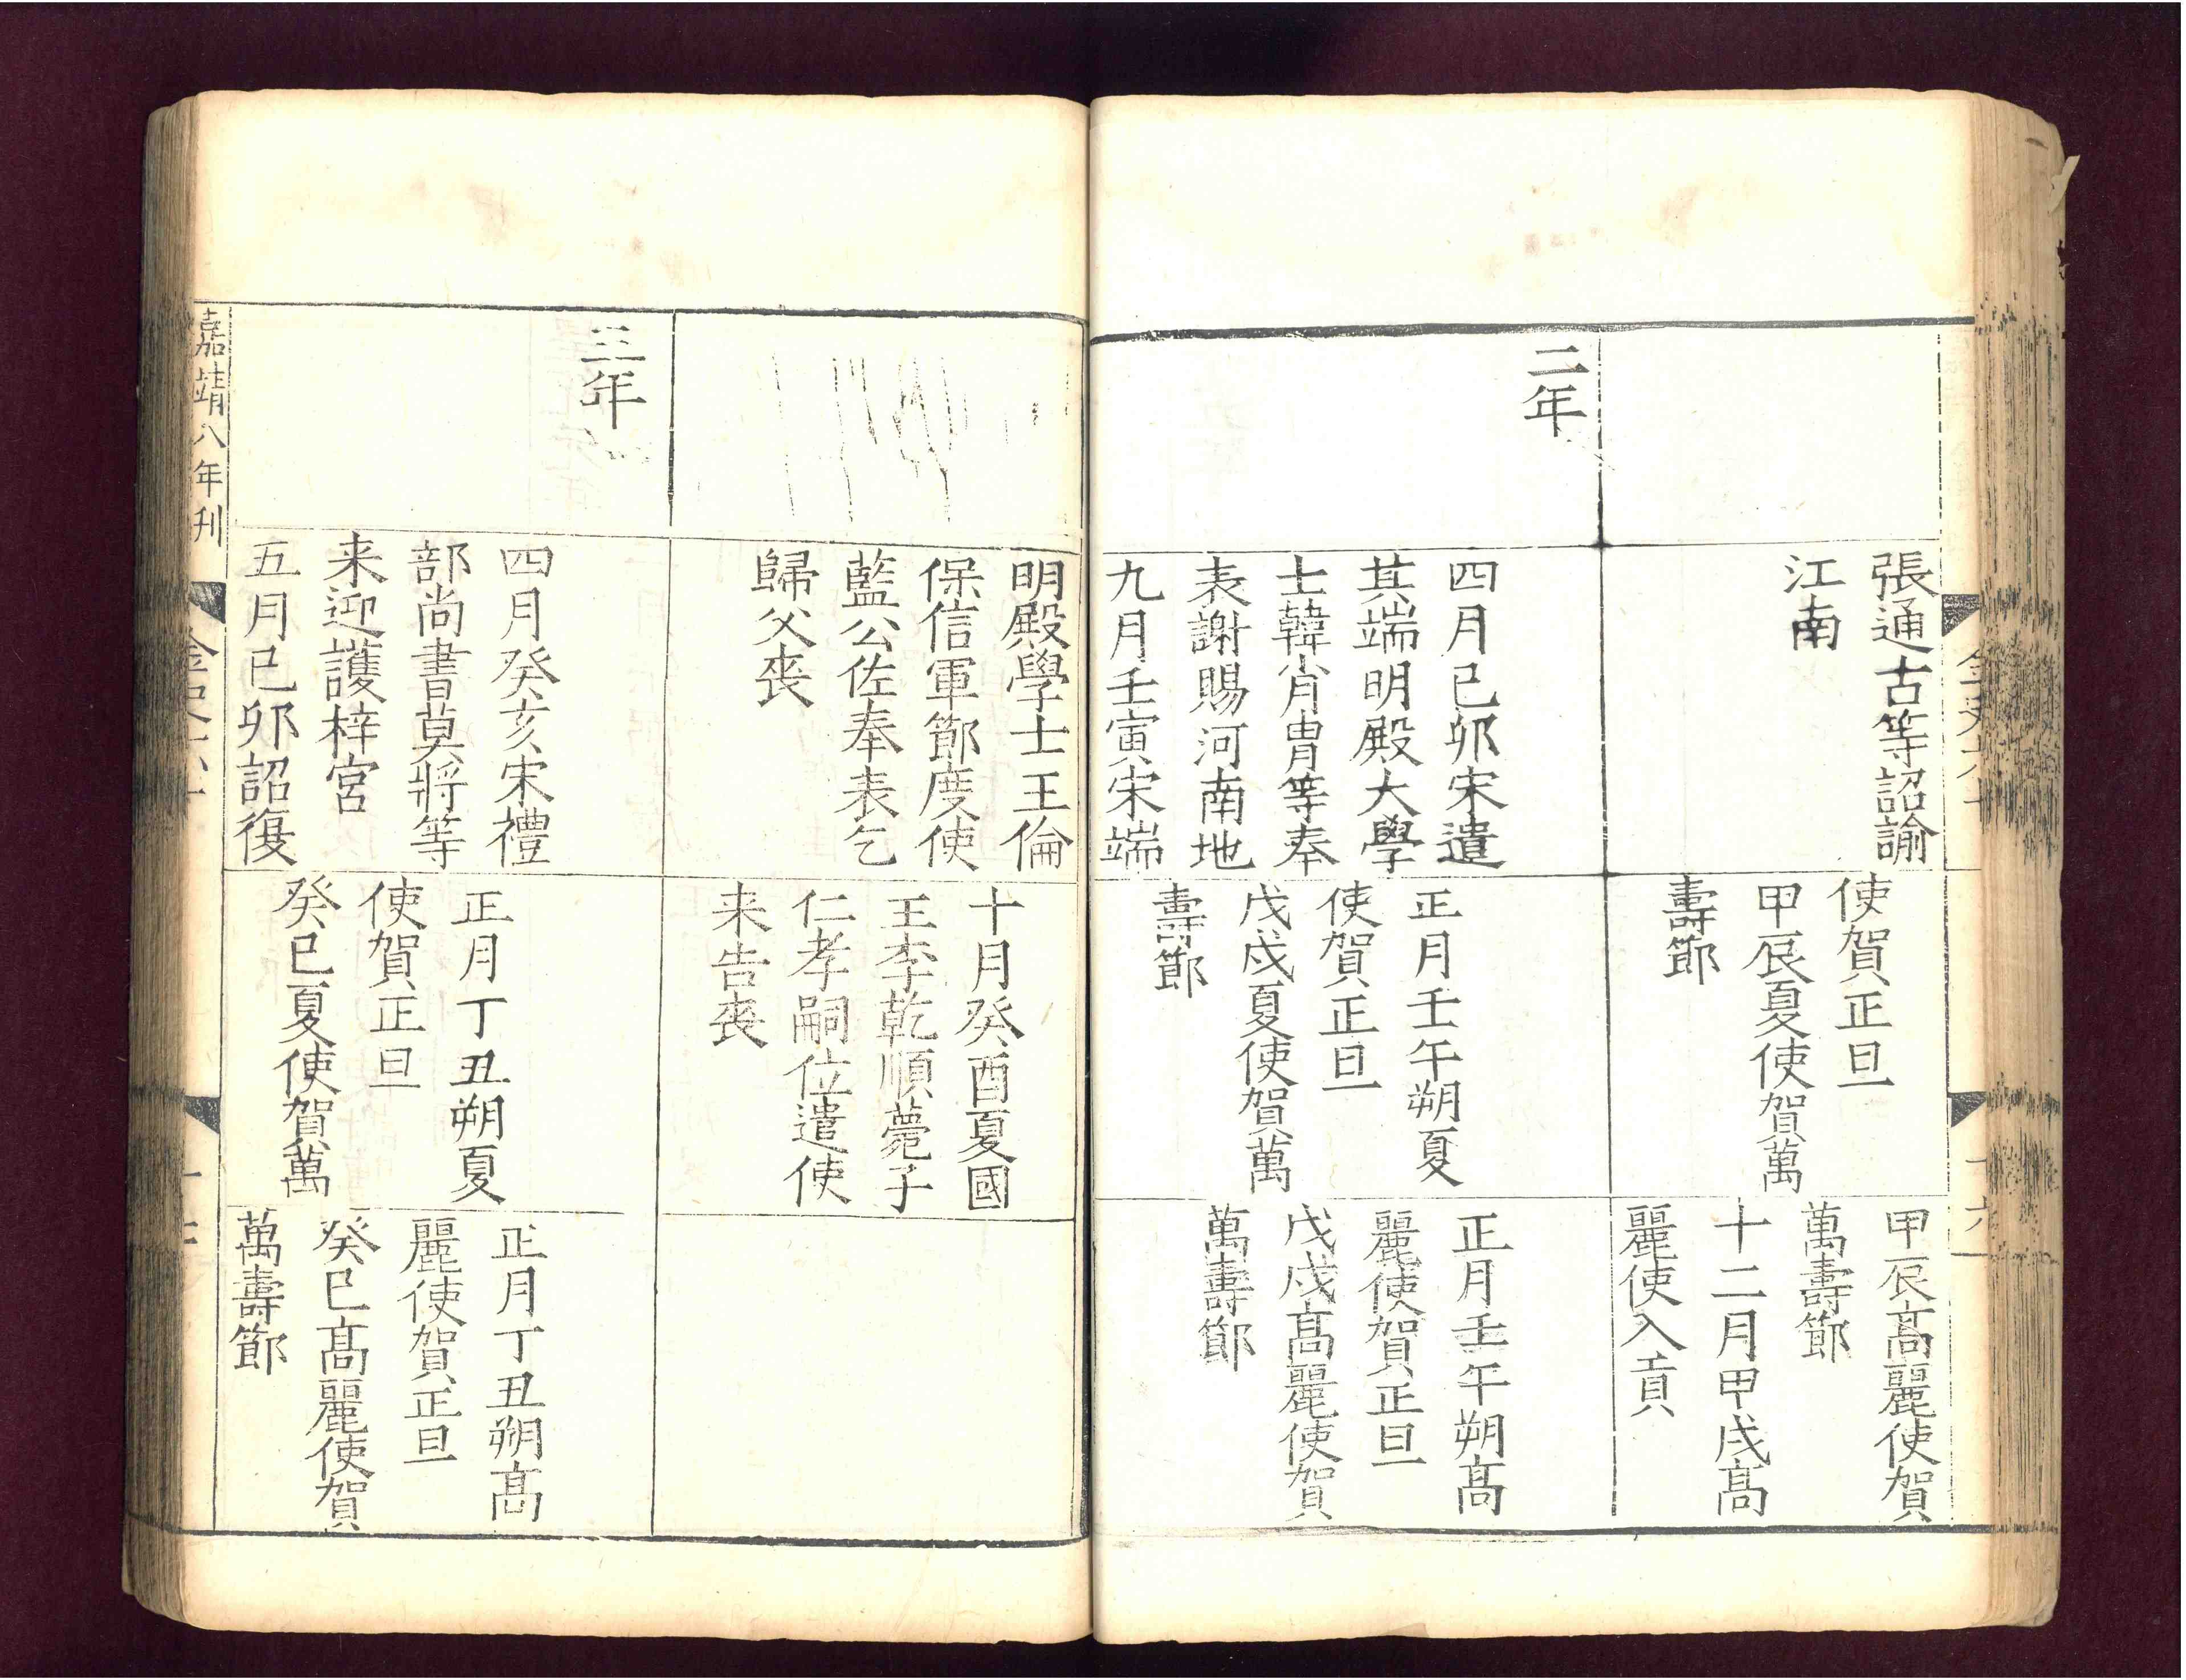 張通古等詔諭
江南
使賀正旦
甲辰夏使賀萬
壽節
甲辰髙麗使賀
萬壽節
十二月甲戌髙
麗使入貢
二年
四月己卯宋遣
其端明殿大學
士韓肖胄等奉
表謝賜河南地
九月壬寅宋端
正月壬午朔夏
使賀正旦
戊戌夏使賀萬
壽節
正月壬午朔髙
麗使賀正旦
戊戌髙麗使賀
萬壽節
明殿學士王倫
保信軍節度使
藍公佐奉表乞
歸父喪
十月癸酉夏國
王李乾順薨子
仁孝嗣位遣使
来告喪
三年
四月癸亥宋禮
部尚書莫將等
来迎護梓宮
五月己卯詔復
正月丁丑朔夏
使賀正旦
癸巳夏使賀萬
正月丁丑朔髙
麗使賀正旦
癸巳髙麗使賀
萬壽節
嘉靖八年刊